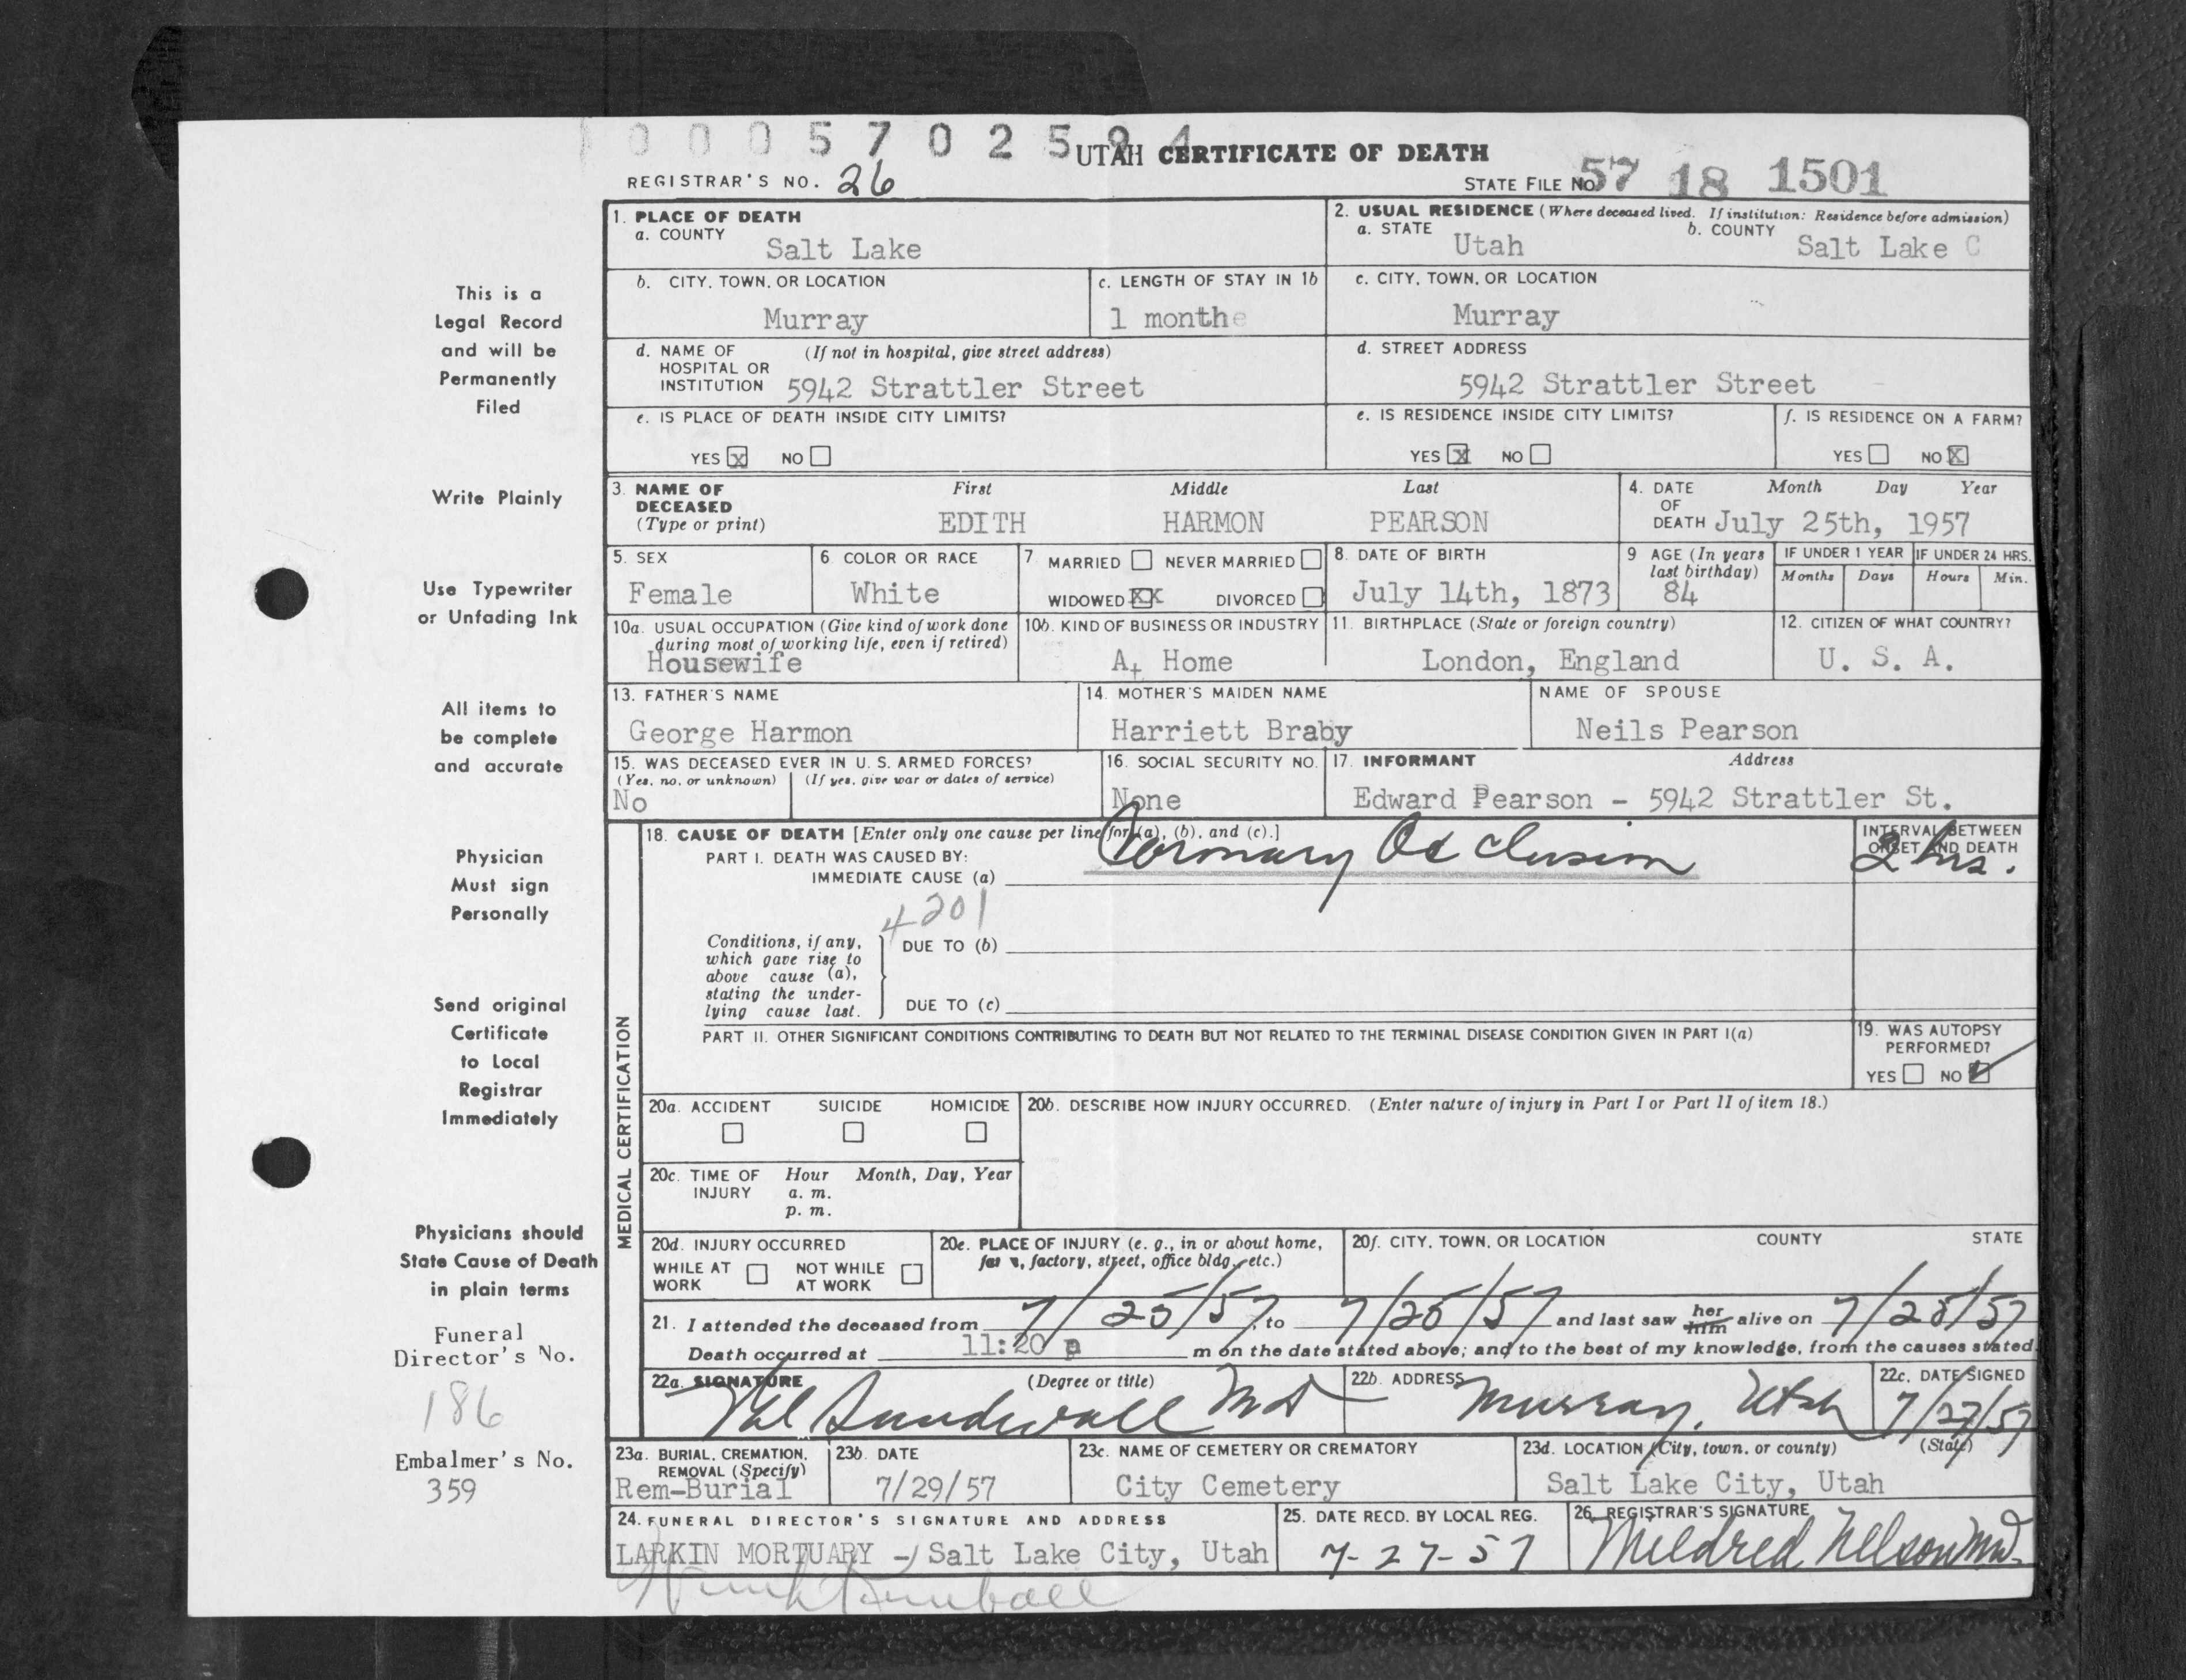 0 0 0 5 7 0 2 5 9 4
UTAH CERTIFICATE OF DEATH
REGISTRAR'S NO. 26
STATE FILE No. 57 18 1501
This is a
Legal Record
and will be
Permanently
Filed
Write Plainly
Use Typewriter
or Unfading Ink
All items to
be complete
and accurate
Physician
Must sign
Personally
Send original
Certificate
to Local
Registrar
Immediately
Physicians should
State Cause of Death
in plain terms
Funeral
Director's No.
186
Embalmer's No.
359
1. PLACE OF DEATH
a. COUNTY Salt Lake
2. USUAL RESIDENCE (Where deceased lived. If institution: Residence before admission)
a. STATE Utah b. COUNTY Salt Lake C
b. CITY, TOWN, OR LOCATION Murray
c. LENGTH OF STAY IN 1b 1 monthe
c. CITY, TOWN, OR LOCATION Murray
d. NAME OF (If not in hospital, give street address)
HOSPITAL OR
INSTITUTION 5942 Strattler Street
d. STREET ADDRESS 5942 Strattler Street
e. IS PLACE OF DEATH INSIDE CITY LIMITS?
YES X NO
e. IS RESIDENCE INSIDE CITY LIMITS?
YES X NO
f. IS RESIDENCE ON A FARM?
YES NO X
3. NAME OF DECEASED (Type or print)
First Middle Last
EDITH HARMON PEARSON
4. DATE OF DEATH Month Day Year
July 25th, 1957
5. SEX Female
6. COLOR OR RACE White
7. MARRIED NEVER MARRIED
WIDOWED XX DIVORCED
8. DATE OF BIRTH July 14th, 1873
9 AGE (In years last birthday) 84
IF UNDER 1 YEAR Months Days
IF UNDER 24 HRS. Hours Min.
10a. USUAL OCCUPATION (Give kind of work done during most of working life, even if retired)
Housewife
10b. KIND OF BUSINESS OR INDUSTRY At Home
11. BIRTHPLACE (State or foreign country) London, England
12. CITIZEN OF WHAT COUNTRY? U. S. A.
13. FATHER'S NAME George Harmon
14. MOTHER'S MAIDEN NAME Harriett Braby
NAME OF SPOUSE Neils Pearson
15. WAS DECEASED EVER IN U. S. ARMED FORCES?
(Yes, no, or unknown) (If yes, give war or dates of service)
No
16. SOCIAL SECURITY NO. None
17. INFORMANT Address
Edward Pearson - 5942 Strattler St.
MEDICAL CERTIFICATION
18. CAUSE OF DEATH [Enter only one cause per line for (a), (b), and (c).]
PART I. DEATH WAS CAUSED BY:
IMMEDIATE CAUSE (a) Coronary Occlusion
INTERVAL BETWEEN ONSET AND DEATH 2 hrs.
4201
Conditions, if any,
which gave rise to
above cause (a),
stating the under-
lying cause last.
DUE TO (b)
DUE TO (c)
PART II. OTHER SIGNIFICANT CONDITIONS CONTRIBUTING TO DEATH BUT NOT RELATED TO THE TERMINAL DISEASE CONDITION GIVEN IN PART I(a)
19. WAS AUTOPSY PERFORMED?
YES NO ✓
20a. ACCIDENT SUICIDE HOMICIDE
20b. DESCRIBE HOW INJURY OCCURRED. (Enter nature of injury in Part I or Part II of item 18.)
20c. TIME OF INJURY Hour Month, Day, Year
a. m.
p. m.
20d. INJURY OCCURRED
WHILE AT WORK NOT WHILE AT WORK
20e. PLACE OF INJURY (e. g., in or about home, farm, factory, street, office bldg., etc.)
20f. CITY, TOWN, OR LOCATION COUNTY STATE
21. I attended the deceased from 7/25/57, to 7/25/57 and last saw her him alive on 7/25/57
Death occurred at 11:20 p m on the date stated above; and to the best of my knowledge, from the causes stated.
22a. SIGNATURE (Degree or title)
Val Sundwall MD
22b. ADDRESS Murray, Utah
22c. DATE SIGNED 7/27/57
23a. BURIAL, CREMATION, REMOVAL (Specify) Rem-Burial
23b. DATE 7/29/57
23c. NAME OF CEMETERY OR CREMATORY City Cemetery
23d. LOCATION (City, town, or county) (State)
Salt Lake City, Utah
24. FUNERAL DIRECTOR'S SIGNATURE AND ADDRESS
LARKIN MORTUARY - Salt Lake City, Utah
25. DATE RECD. BY LOCAL REG. 7-27-57
26. REGISTRAR'S SIGNATURE
Mildred Nelson MD.
Kimball